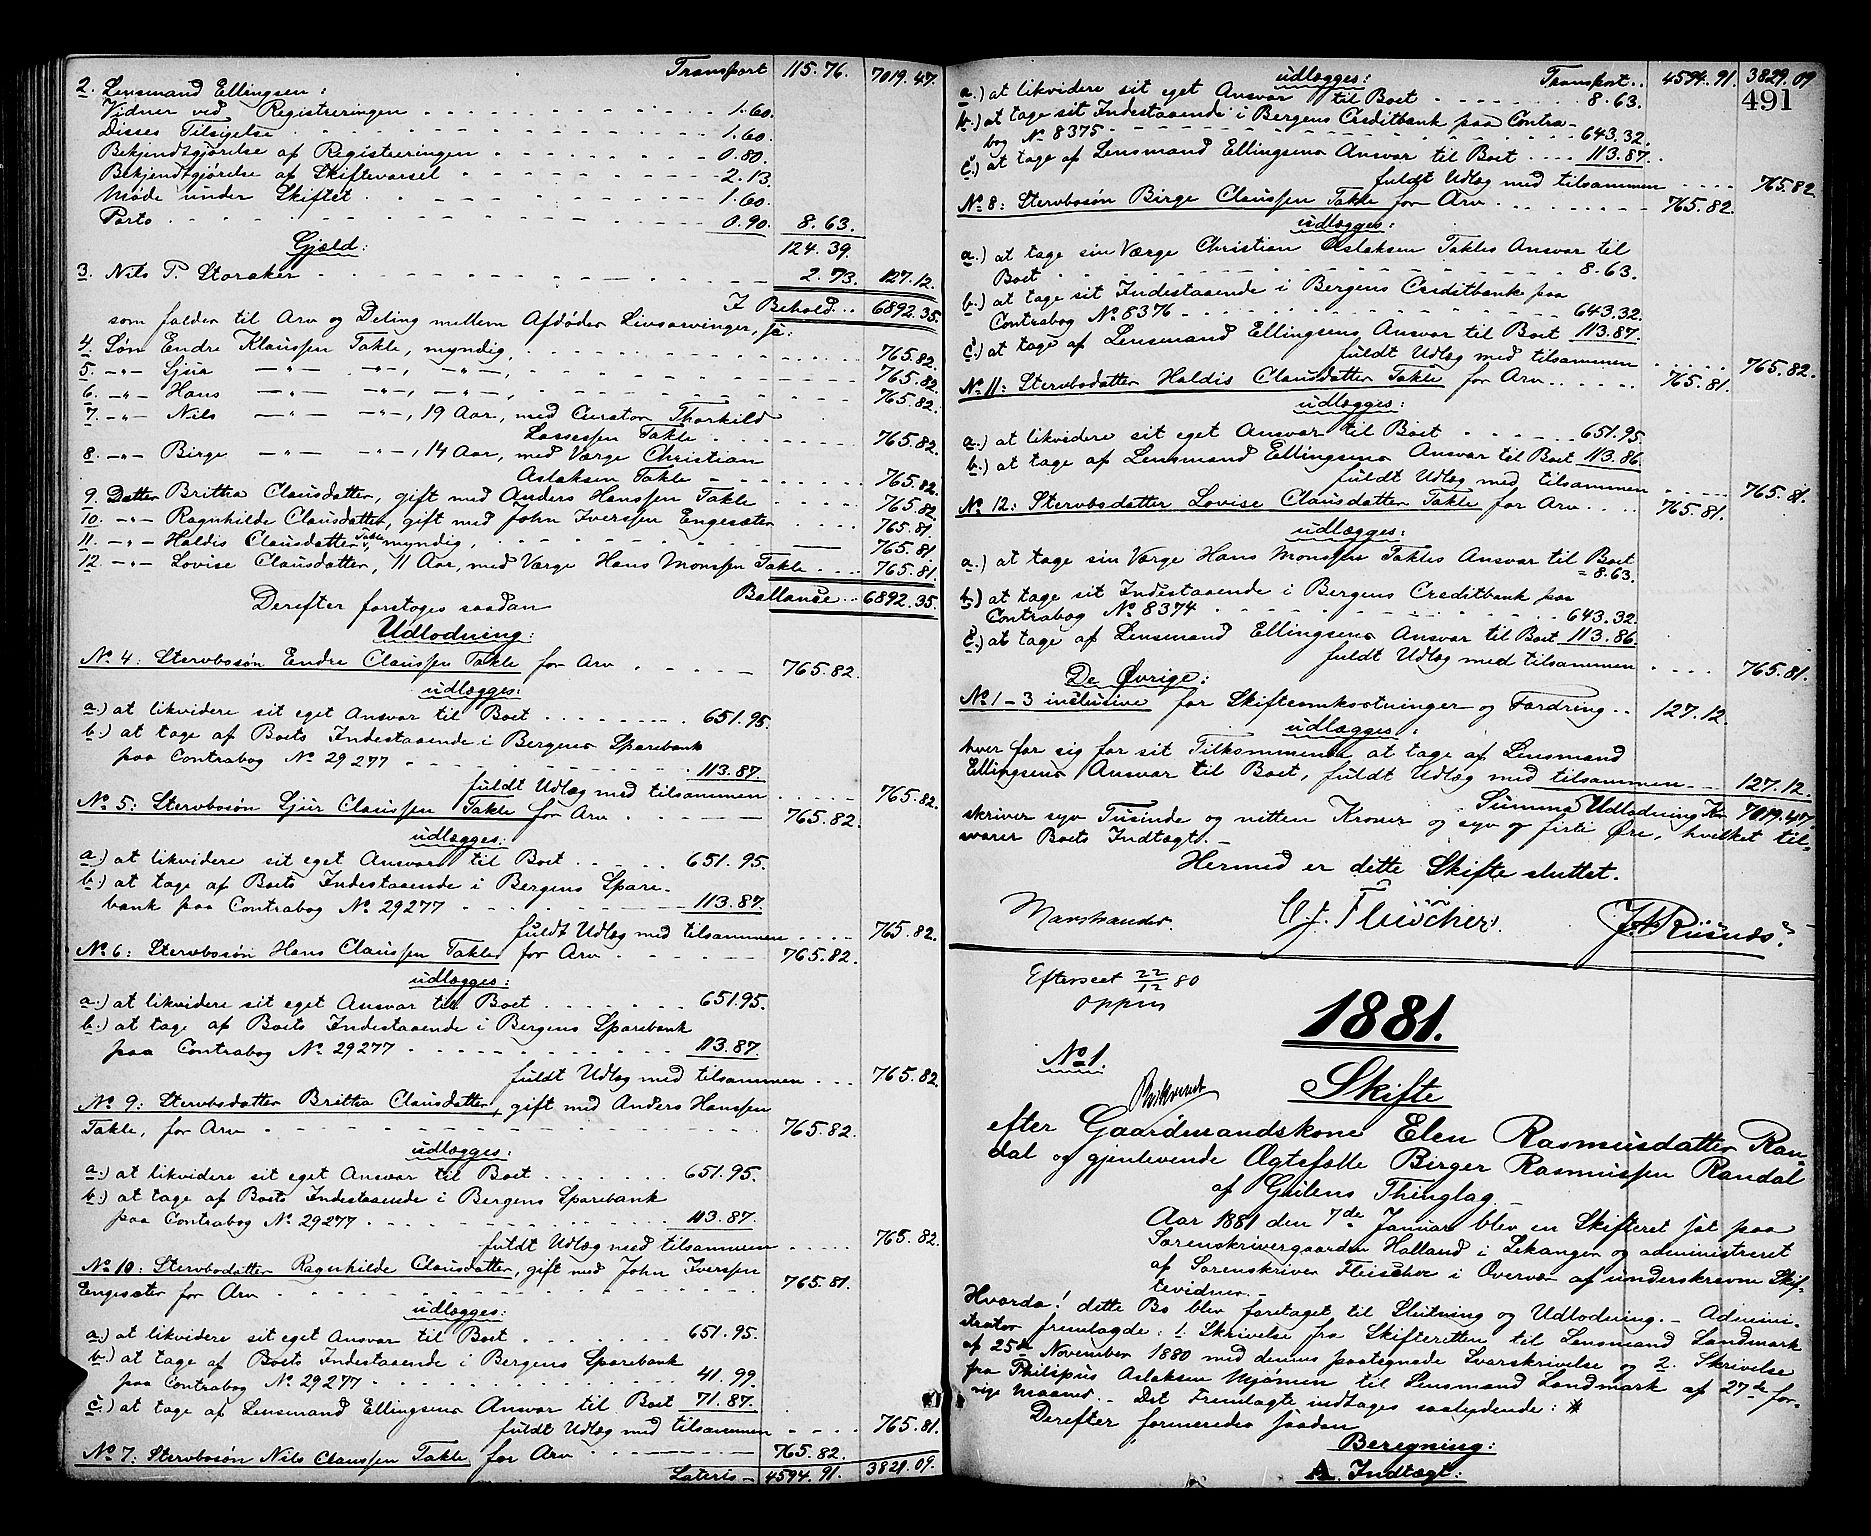 Transport 115.76. 7019.47.
2. Lensmand Ellingsen:
Vidner ved Registreringen 1.60.
Disses Tilsigelse 1.60.
Bekjendtgjörelse af Registreringen 0.80.
Bekjendtgjörelse af Skiftevarsel 2.13.
Møde under Skiftet 1.60.
Porto 0.90. 8.63.
Gjæld: 124.39.
3. Nils P. Storaker 2.73. 127.12.
I Behold 6892.35.
som falder til Arv og Deling mellem Afdødes Livsarvinger, ja:
4. Søn Endre Klaussen Takle, myndig, 765.82.
5. -"- Sjur -"- -"-, -"-, 765.82.
6. -"- Hans -"- -"-, -"-, 765.82.
7. -"- Nils -"- -"-, 19 Aar, med Curator Thorkild
Lassessen Takle 765.82.
8. -"- Birge -"- -"-, 14 Aar, med Værge Christian
Aslaksen Takle 765.82.
9. Datter Brittha Clausdatter, gift med Anders Hanssen Takle 765.82.
10. -"- Ragnhilde Clausdatter, gift med John Iverssen Engesæter 765.81.
11. -"- Haldis Clausdatter Takle, myndig, 765.81.
12. -"- Lovise Clausdatter, 11 Aar, med Værge Hans Monssen Takle 765.81.
Ballance 6892.35.
Derefter foretoges saadan
Udlodning:
No 4: Stervbosøn Endre Claussen Takle for Arv 765.82.
udlægges:
a.) at likvidere sit eget Ansvar til Boet 651.95.
b.) at tage af Boets Indestaaende i Bergens Sparebank
paa Contrabog No 29277 113.87.
fuldt Udlæg med tilsammen 765.82.
No 5: Stervbosøn Sjur Claussen Takle for Arv 765.82.
udlægges:
a.) at likvidere sit eget Ansvar til Boet 651.95.
b.) at tage af Boets Indestaaende i Bergens Spare-
bank paa Contrabog No 29277 113.87.
fuldt Udlæg med tilsammen 765.82.
No 6: Stervbosøn Hans Claussen Takle for Arv 765.82.
udlægges:
a.) at likvidere sit eget Ansvar til Boet 651.95.
b.) at tage af Boets Indestaaende i Bergens Sparebank
paa Contrabog No 29277 113.87.
fuldt Udlæg med tilsammen 765.82.
No 9: Stervbodatter Brittha Clausdatter, gift med Anders Hanssen
Takle, for Arv 765.82.
udlægges:
a.) at likvidere sit eget Ansvar til Boet 651.95.
b.) at tage af Boets Indestaaende i Bergens Sparebank
paa Contrabog No 29277 113.87.
fuldt Udlæg med tilsammen 765.82.
No 10: Stervbodatter Ragnhilde Clausdatter, gift med John Iverssen
Engesæter for Arv 765.81.
udlægges:
a.) at likvidere sit eget Ansvar til Boet 651.95.
b.) at tage af Boets Indestaaende i Bergens Sparebank
paa Contrabog No 29277 41.99.
c.) at tage af Lensmand Ellingsens Ansvar til Boet 71.87.
fuldt Udlæg med tilsammen 765.81.
No 7: Stervbosøn Nils Claussen Takle for Arv 765.82.
Lateris 4594.91. 3829.09.
491
udlægges: Transport 4594.91. 3829.09
a.) at likvidere sit eget Ansvar til Boet 8.63.
b.) at tage sit Indestaaende i Bergens Creditbank paa Contra-
bog No 8375 643.32.
c.) at tage af Lensmand Ellingsens Ansvar til Boet 113.87.
fuldt Udlæg med tilsammen 765.82
No 8: Stervbosøn Birge Claussen Takle for Arv 765.82.
udlægges:
a.) at tage sin Værge Christian Aslaksen Takles Ansvar til
Boet 8.63.
b.) at tage sit Indestaaende i Bergens Creditbank paa
Contrabog No 8376 643.32.
c.) at tage af Lensmand Ellingsens Ansvar til Boet 113.87.
fuldt Udlæg med tilsammen 765.82.
No 11: Stervbodatter Haldis Clausdatter Takle for Arv 765.81.
udlægges:
a.) at likvidere sit eget Ansvar til Boet 651.95.
b.) at tage af Lensmand Ellingsens Ansvar til Boet 113.86.
fuldt Udlæg med tilsammen 765.81.
No 12: Stervbodatter Lovise Clausdatter Takle for Arv 765.81.
udlægges:
a.) at tage sin Værge Hans Monssen Takles Ansvar til Boet
8.63.
b.) at tage sit Indestaaende i Bergens Creditbank paa
Contrabog No 8374 643.32.
c.) at tage af Lensmand Ellingsens Ansvar til Boet 113.86.
fuldt Udlæg med tilsammen 765.81.
De Øvrige:
No 1-3 inclusive for Skifteomkostninger og Fordring 127.12.
udlægges:
hver for sig for sit Tilkommende at tage af Lensmand
Ellingsens Ansvar til Boet, fuldt Udlæg med tilsammen 127.12.
Summa Udlodning Kr. 7019.47,
skriver syv Tusinde og nitten Kroner og syv og firti Øre, hvilket til-
svarer Boets Indtægt.
Hermed er dette Skifte sluttet.
C. J. Fleischer. J. A. Risnæs.
Efterseet 22/12 80
1881.
No 1.
Skifte
efter Gaardmandskone Elen Rasmusdatter Ran
dal og gjenlevende Ægtefælle Birger Rasmussen Randal
af Gulens Thinglag
Aar 1881 den 7de Januar blev en Skifteret sat paa
Sorenskrivergaarden Halland i Lekanger og administreret
af Sorenskriver Fleischer i Overvær af underskrevne Skif-
tevidner.
Hvorda! dette Bo blev foretaget til Slutning og Udlodning. Admini-
strator fremlagde: 1. Skrivelse fra Skifteretten til Lensmand Landmark
af 25de November 1880 med dennes paategnede Svarskrivelse og 2. Skrivelse
fra Philipus Aslaksen Mjømen til Lensmand Landmark af 27de for-
rige Maaned. Det Fremlagte indtages saalydende: *
Derefter formeredes saadan
Beregning:
A. Indtægt: